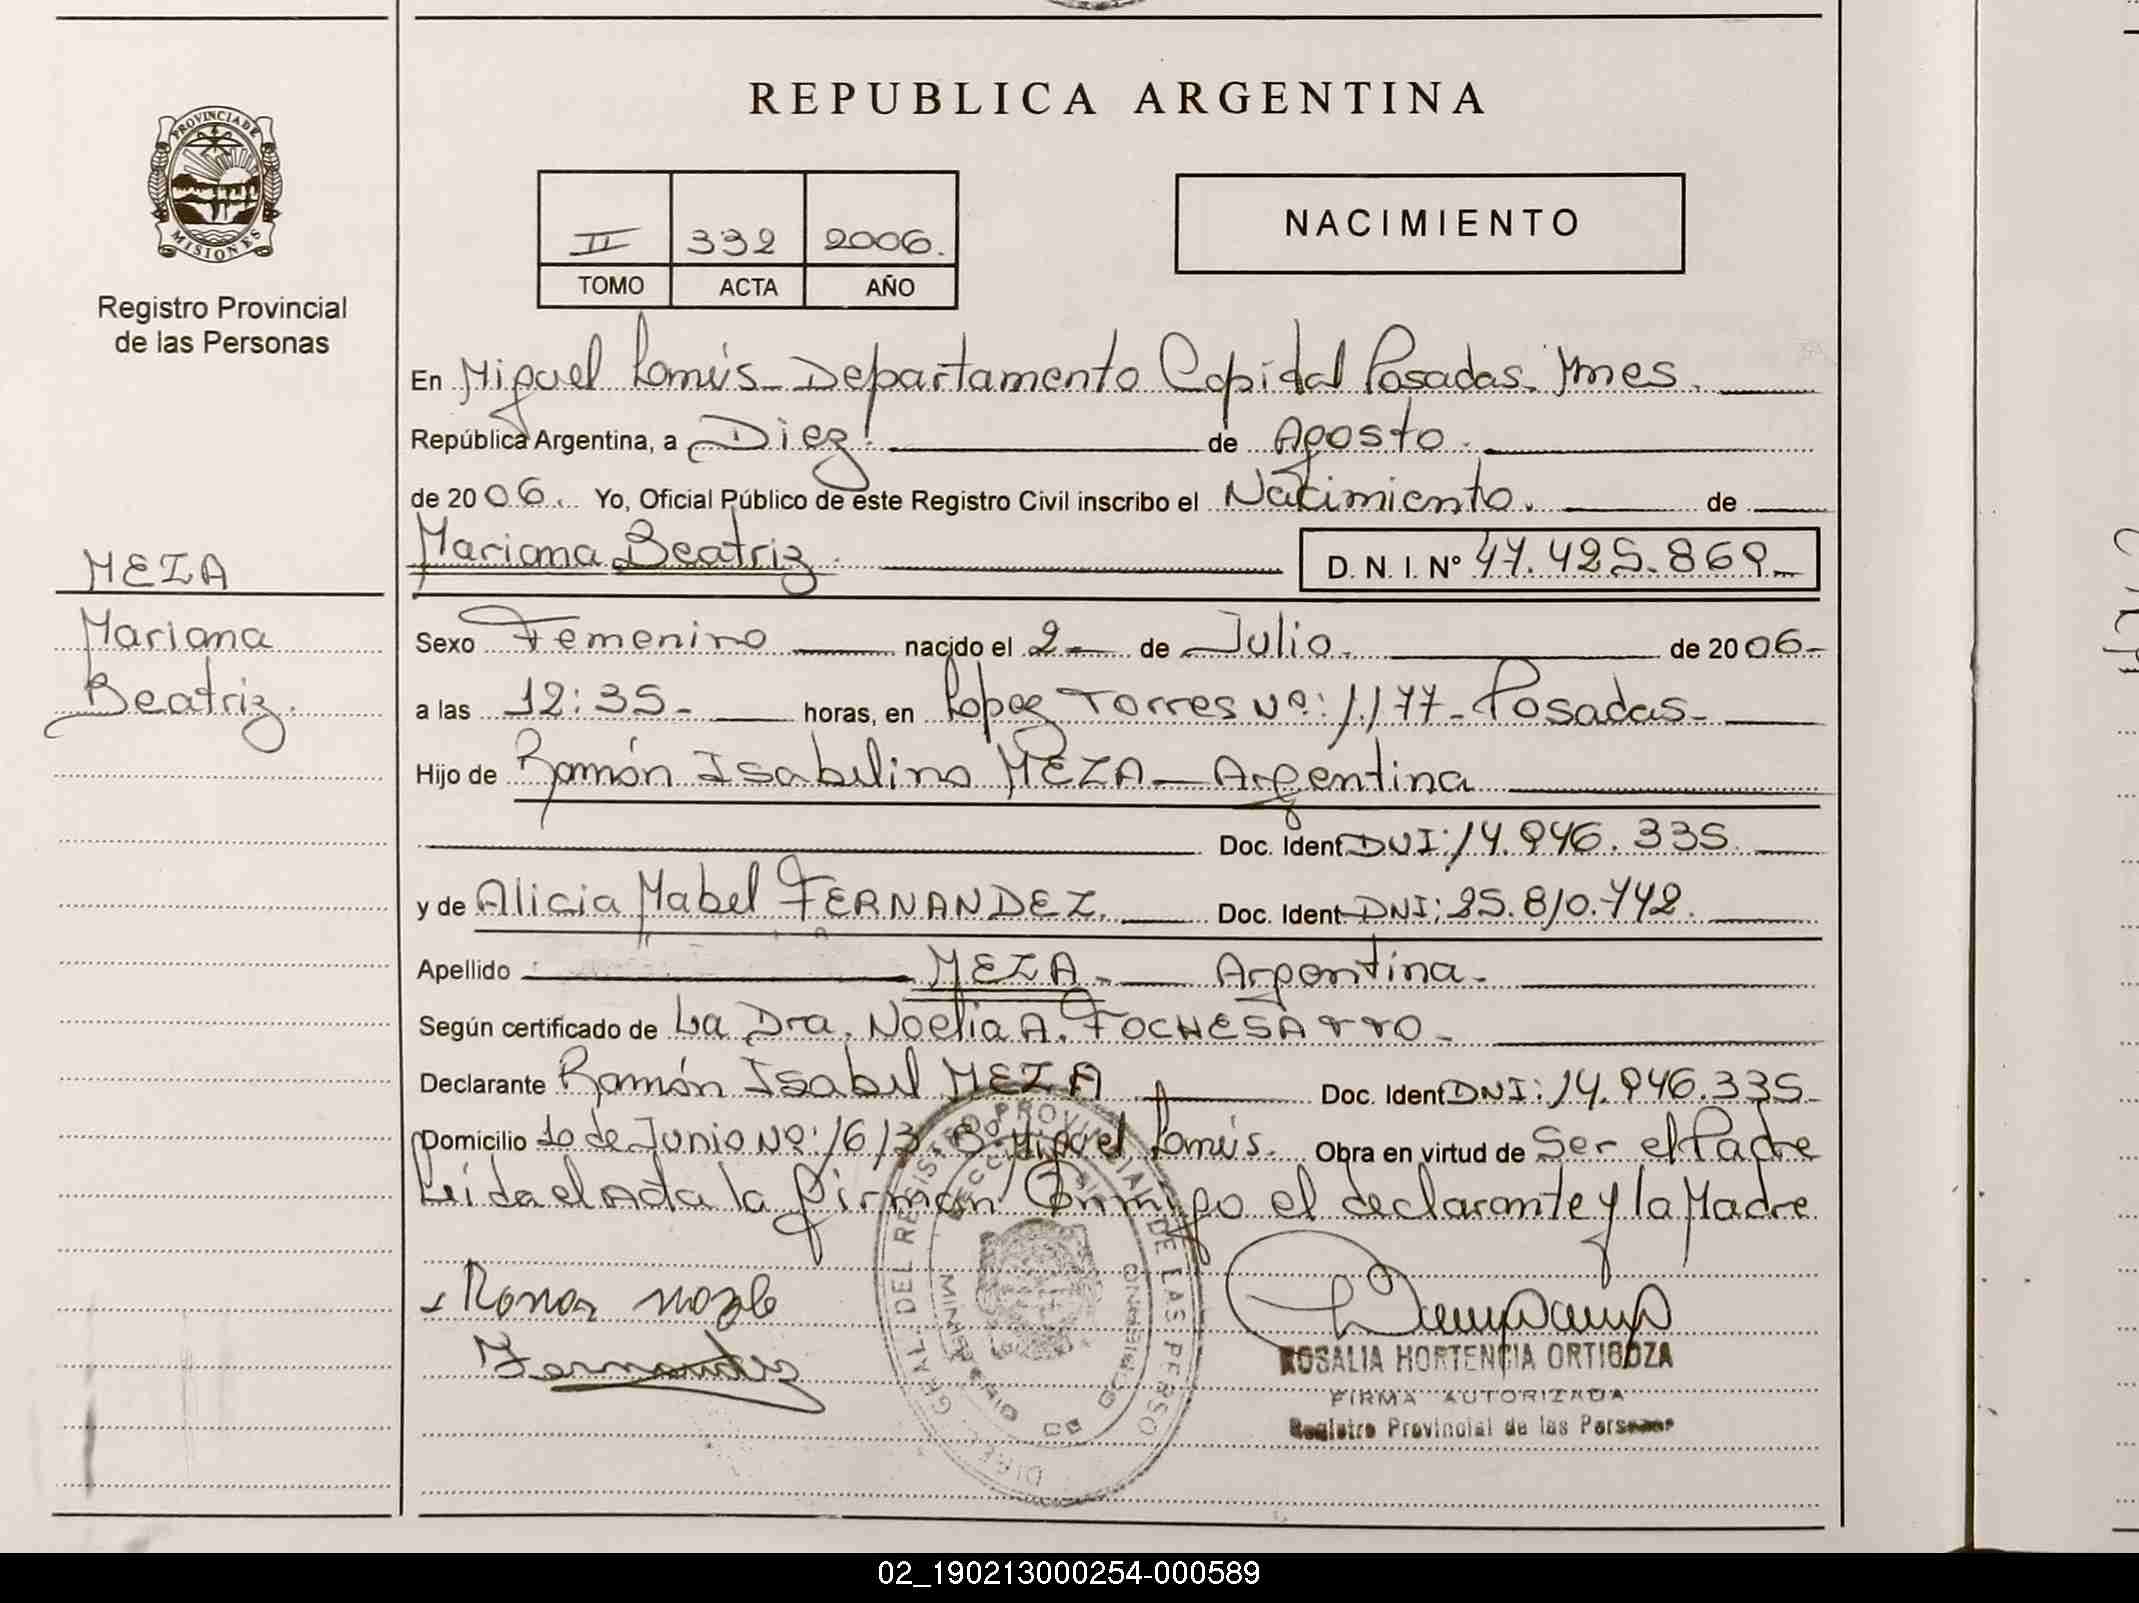 REPUBLICA ARGENTINA
PROVINCIA DE
MISIONES
Registro Provincial
de las Personas
II 332 2006.
TOMO ACTA AÑO
NACIMIENTO
En Miguel Lanús Departamento Capital Posadas. Mnes.
República Argentina, a Diez. de Agosto.
de 2006. Yo, Oficial Público de este Registro Civil inscribo el Nacimiento. de
Mariana Beatriz. D. N. I. Nº 47.425.869
MEZA
Mariana
Beatriz.
Sexo Femenino nacido el 2 de Julio. de 2006
a las 12:35 horas, en Lopez Torres Nº: 1.177 - Posadas
Hijo de Ramón Isabelino MEZA - Argentina
Doc. Ident DNI: 14.946.335
y de Alicia Mabel FERNANDEZ. Doc. Ident DNI: 25.810.742.
Apellido MEZA - Argentina
Según certificado de La Dra. Noelia A. FOCHESATTO
Declarante Ramón Isabel MEZA Doc. Ident DNI: 14.946.335
Domicilio 10 de Junio Nº: 1613 B. Miguel Lanús. Obra en virtud de Ser el Padre
Leida el Acta la firman Conmigo el declarante y la Madre
Fernandez
DIREC. GRAL DEL REGISTRO PROVINCIAL DE LAS PERSO
ROSALIA HORTENCIA ORTIGOZA
FIRMA AUTORIZADA
Registro Provincial de las Personas
02_190213000254-000589